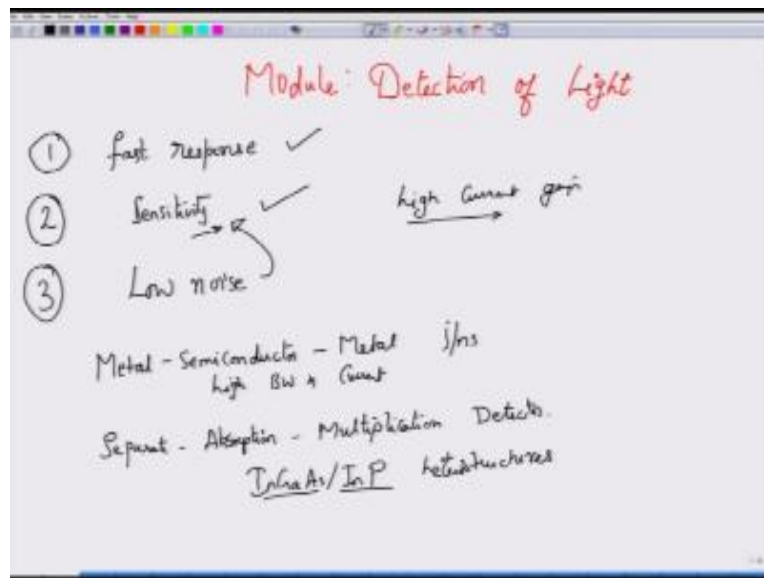 Module: Detection of Light
① fast response ✓
② Sensitivity ✓ high Current gain
③ Low noise
Metal - Semiconductor - Metal j/ns
high BW & Current
Separat - Absorption - Multiplication Detectors.
InGaAs/InP heterostructures